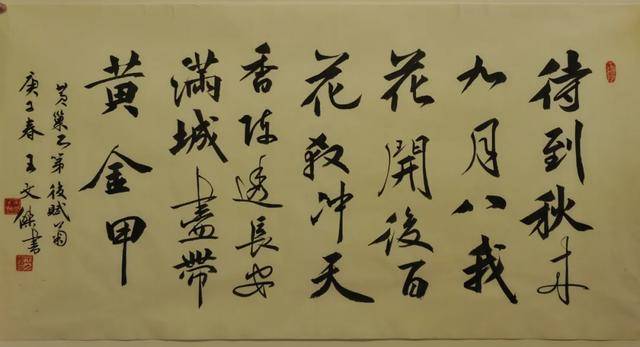 待到秋来
九月八我
花開後百
花殺冲天
香阵透長安
滿城盡帶
黄金甲
黄巢不第後賦菊
庚子春王文傑書